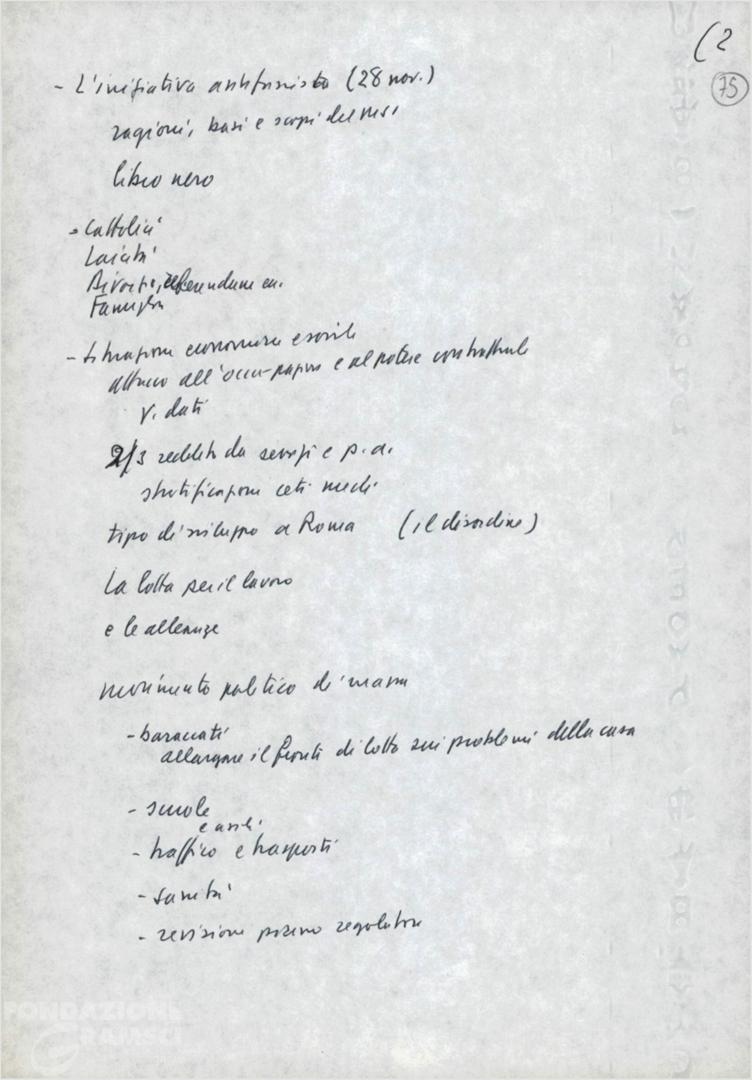 (2
75
- L'iniziativa antifascista (28 nov.)
ragioni, basi e scopi del
libro nero
- Cattolici
Laicità
Divorzio, referendum ecc.
Famiglia
- Situazione economica e sociale
attacco all'occupazione e al potere contrattuale
V. dati
2/3 reddito da servizi e p.a.
stratificazione ceti medi
tipo di sviluppo a Roma (il disordine)
La lotta per il lavoro
e le alleanze
movimento politico di massa
- baraccati
allargare il fronte di lotta sui problemi della casa
- scuole
e asili
- traffico e trasporti
- sanità
- revisione piano regolatore
FONDAZIONE
GRAMSCI